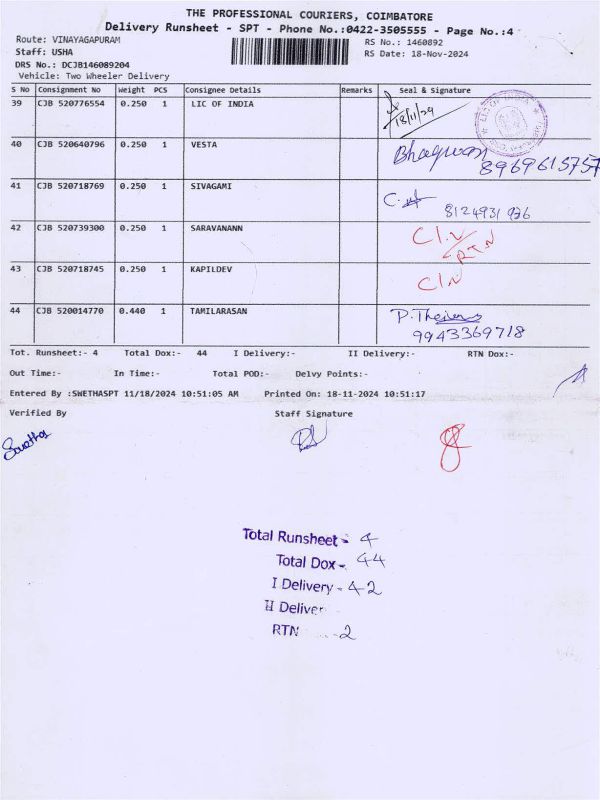 THE PROFESSIONAL COURIERS, COIMBATORE
Delivery Runsheet - SPT - Phone No.:0422-3505555 - Page No.:4
Route: VINAYAGAPURAM
RS No.: 1460892
Staff: USHA
RS Date: 18-Nov-2024
DRS No.: DCJB146089204
Vehicle: Two Wheeler Delivery
S No Consignment No Weight PCS Consignee Details Remarks Seal & Signature
39 CJB 520776554 0.250 1 LIC OF INDIA 18/11/24
40 CJB 520640796 0.250 1 VESTA Bhagwan 8969615757
41 CJB 520718769 0.250 1 SIVAGAMI 8124931926
42 CJB 520739300 0.250 1 SARAVANANN RTN
43 CJB 520718745 0.250 1 KAPILDEV
44 CJB 520014770 0.440 1 TAMILARASAN 9943369718
Tot. Runsheet:- 4 Total Dox:- 44 I Delivery:- II Delivery:- RTN Dox:-
Out Time:- In Time:- Total POD:- Delvy Points:-
Entered By :SWETHASPT 11/18/2024 10:51:05 AM Printed On: 18-11-2024 10:51:17
Verified By Staff Signature
Swetha
Total Runsheet - 4
Total Dox - 44
I Delivery - 42
II Deliver
RTN - 2